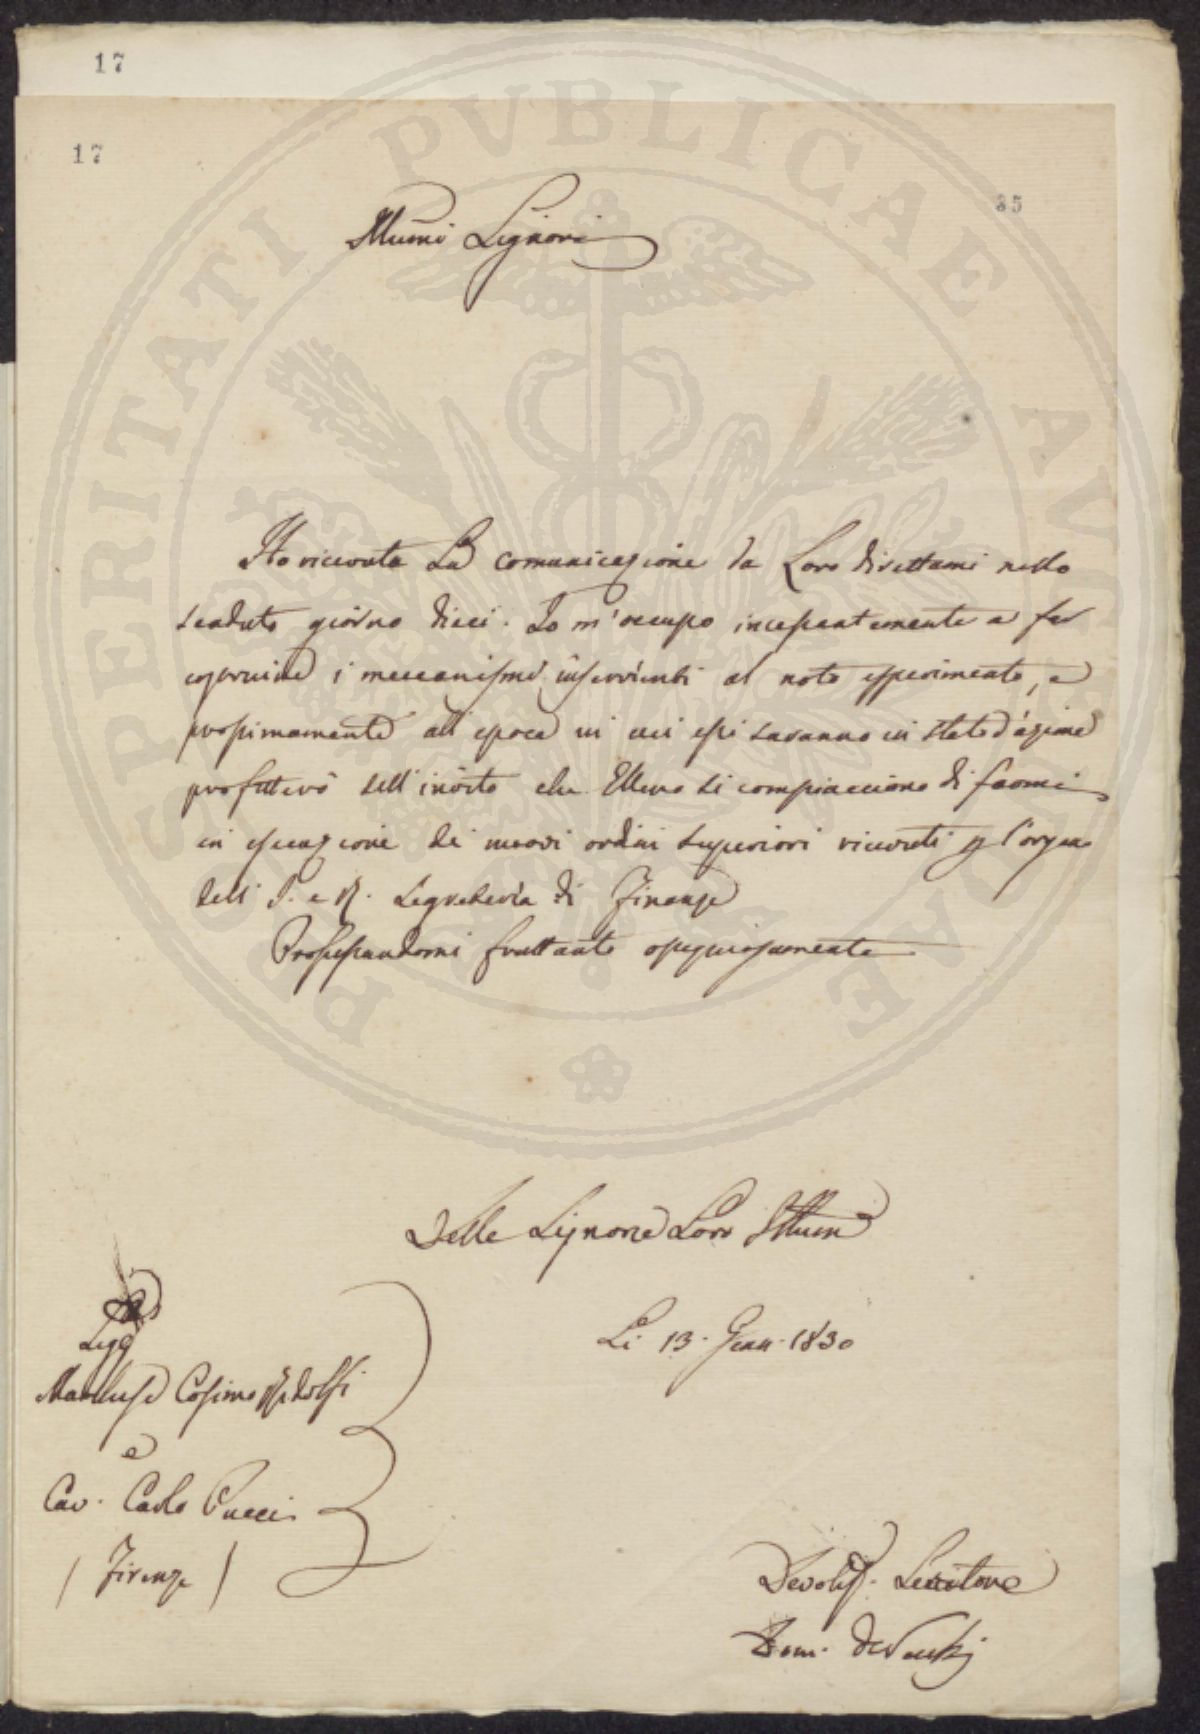 17
17
35
Illumi Signori
Ho ricevuta La comunicazione da Loro direttami nello
scaduto giorno dieci. Io m'occupo incessantemente a far
costruire i meccanismi inservienti al noto esperimento, e
prossimamente all'epoca in cui essi saranno in stato d'azione
profitterò dell'invito che Elleno si compiacciono di farmi
in esecuzione dei nuovi ordini superiori ricevuti p l'organo
dell'I. e R. Segreteria di Finanze
Professandomi frattanto ossequiosamente
Delle Signorie Loro Illume
Li 13. Genn. 1830
Sigg
Marchese Cosimo Ridolfi
e
Cav. Carlo Pucci
(Firenze)
Devotiss. Servitore
Dom. de Vecchj
PVBLICAE
PROSPERITATI
AVGENDAE